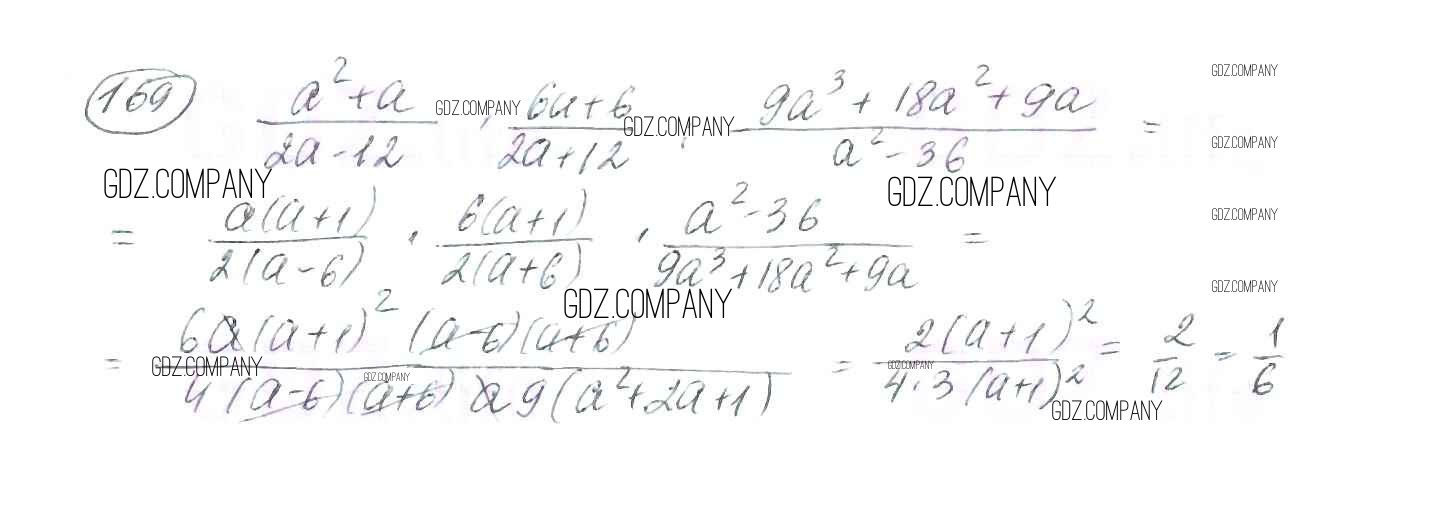 169 (a^2+a)/(2a-12) · (6a+6)/(2a+12) : (9a^3+18a^2+9a)/(a^2-36) =
= a(a+1)/2(a-6) · 6(a+1)/2(a+6) · (a^2-36)/(9a^3+18a^2+9a) =
= 6a(a+1)^2(a-6)(a+6)/4(a-6)(a+6)a9(a^2+2a+1) = 2(a+1)^2/4·3(a+1)^2 = 2/12 = 1/6
GDZ.COMPANY
GDZ.COMPANY
GDZ.COMPANY
GDZ.COMPANY
GDZ.COMPANY
GDZ.COMPANY
GDZ.COMPANY
GDZ.COMPANY
GDZ.COMPANY
GDZ.COMPANY
GDZ.COMPANY
GDZ.COMPANY
GDZ.COMPANY